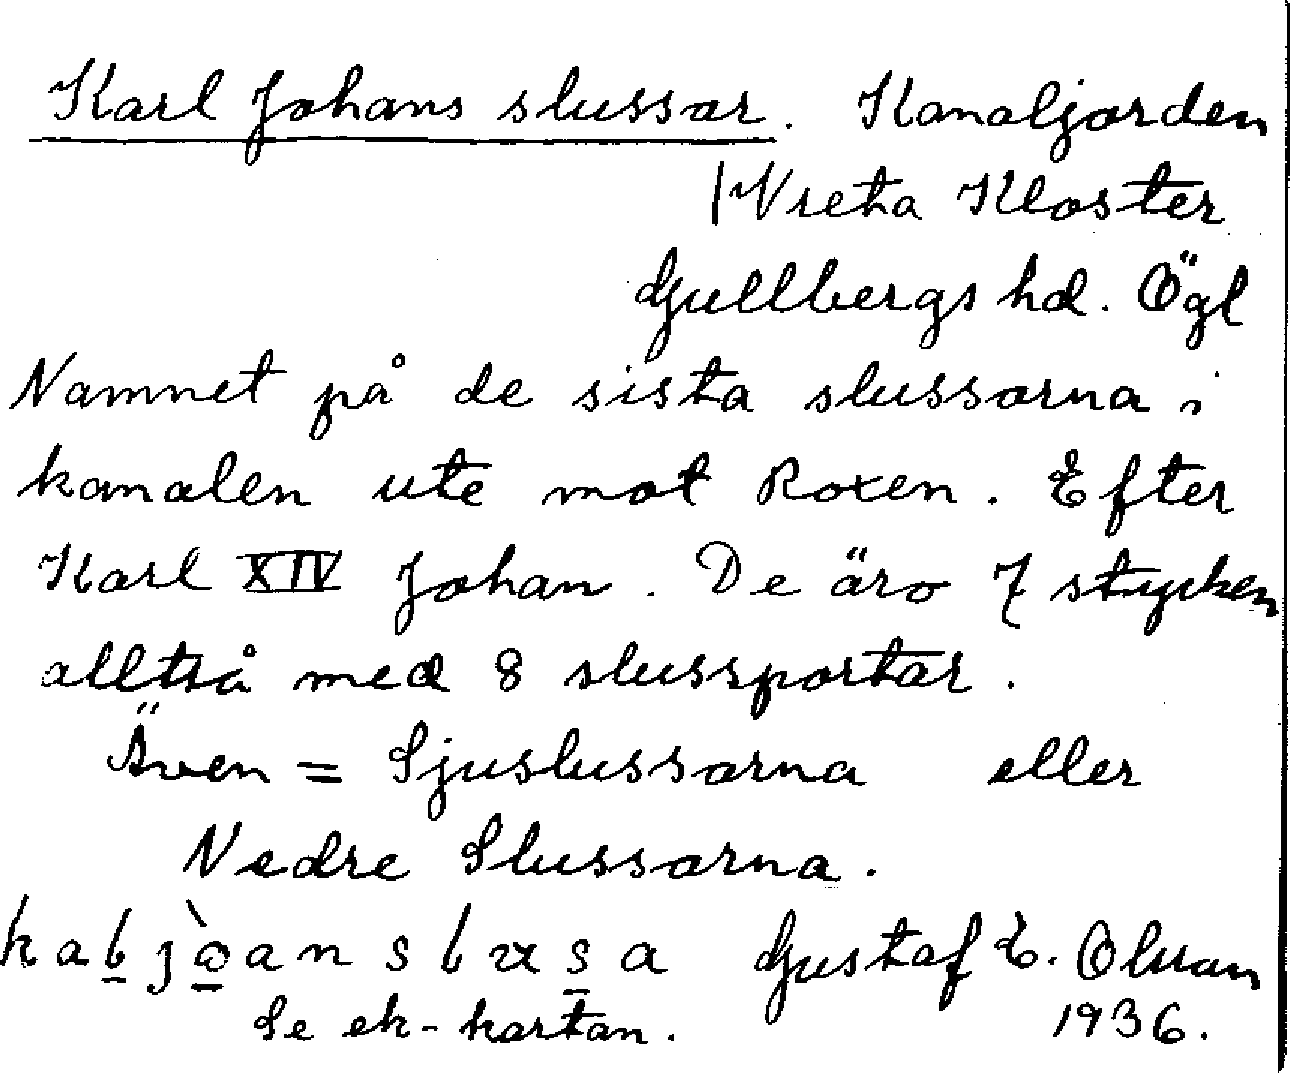 Karl Johans slussar. Kanaljorden
Vreta Kloster
Gullbergs hd. Ögl
Namnet på de sista slussarna i
kanalen ute mot Roxen. Efter
Karl XIV Johan. De äro 7 stycken
alltså med 8 slussportar.
Även = Sjuslussarna eller
Nedre Slussarna.
Gustaf E.
Se ek-kartan. 1936.